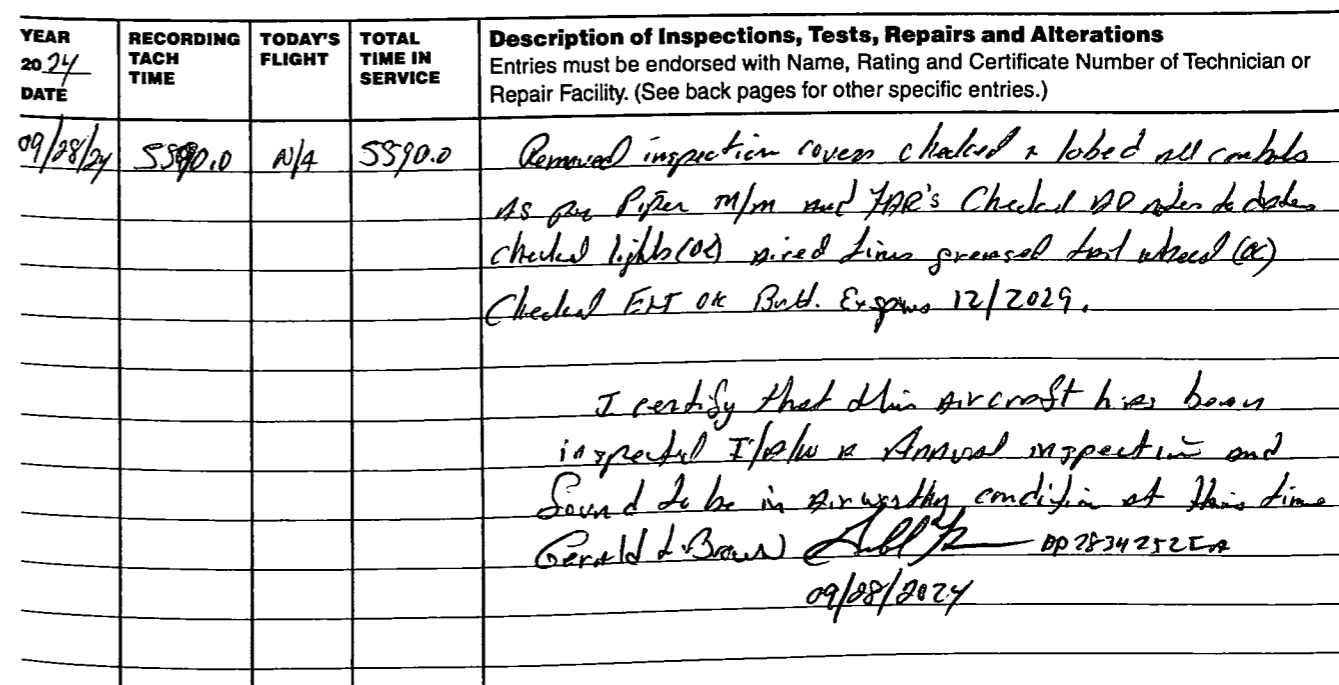 YEAR 20 24 DATE
RECORDING TACH TIME
TODAY'S FLIGHT
TOTAL TIME IN SERVICE
Description of Inspections, Tests, Repairs and Alterations
Entries must be endorsed with Name, Rating and Certificate Number of Technician or
Repair Facility. (See back pages for other specific entries.)
09/28/24 5590.0 N/A 5590.0 Removed inspection covers checked & lobed all controls
As per Piper m/m and FAR's Checked AD notes to date
checked lights (ok) tires greased tail wheel (ok)
Checked ELT OK Batt. Expires 12/2029.
I certify that this Aircraft has been
inspected I/A/W a Annual inspection and
Found to be in airworthy condition at this time
Gerald L Brown AP2834252IA
09/28/2024